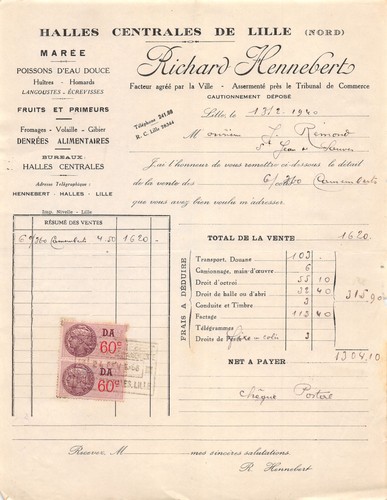 HALLES CENTRALES DE LILLE (NORD)
MARÉE
POISSONS D'EAU DOUCE
Huîtres - Homards
LANGOUSTES - ÉCREVISSES
FRUITS ET PRIMEURS
Fromages - Volaille - Gibier
DENRÉES ALIMENTAIRES
BUREAUX
HALLES CENTRALES
Adresse Télégraphique :
HENNEBERT - HALLES - LILLE
Richard Hennebert
Facteur agréé par la Ville - Assermenté près le Tribunal de Commerce
CAUTIONNEMENT DÉPOSÉ
Téléphone 541.88
R. C. Lille
Lille, le 13/2 1940
M onsieur J. Rémond
St Jean de
J'ai l'honneur de vous remettre ci-dessous le détail
de la vente des 6/ Camemberts
que vous avez bien voulu m'adresser.
Imp. Nivelle - Lille
RÉSUMÉ DES VENTES
6 360 Camemberts 4.50 1620
DA
60c
DA
60c
LILLE
TOTAL DE LA VENTE 1620
FRAIS A DÉDUIRE
Transport, Douane 103
Camionnage, main-d'œuvre 6
Droit d'octroi 55 10
Droit de halle ou d'abri 32 40
Conduite et Timbre 3
Factage 113 40
Télégrammes
Droits de colis 3
315.90
NET A PAYER 1304.10
chèque Postal
Recevez, M mes sincères salutations.
R. Hennebert